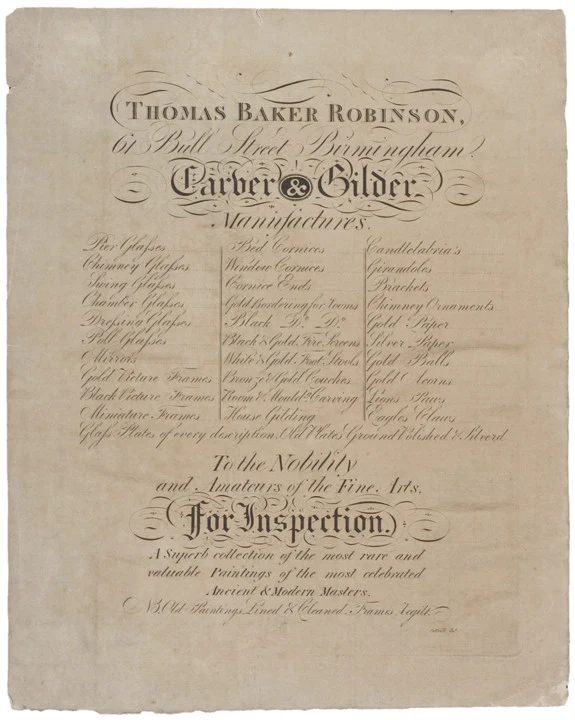 THOMAS BAKER ROBINSON,
61 Bull Street Birmingham.
Carver & Gilder.
Manufactures.
Pier Glaſses
Chimney Glaſses
Swing Glaſses
Chamber Glaſses
Dreſsing Glaſses
Poll Glaſses
Mirrors
Gold Picture Frames
Black Picture Frames
Miniature Frames
Bed Cornices
Window Cornices
Cornice Ends
Gold Bordering for Rooms
Black Do. Do.
Black & Gold Fire Screens
White & Gold Foot Stools
Bronze & Gold Couches
Room & Mould.g Carving
House Gilding
Candlelabria's
Girandoles
Brackets
Chimney Ornaments
Gold Paper
Silver Paper
Gold Balls
Gold Acorns
Lions Paws
Eagles Claws
Glaſs Plates of every description, Old Plates Ground Polished & Silverd
To the Nobility
and Amateurs of the Fine Arts.
For Inspection.
A Superb collection of the most rare and
valuable Paintings of the most celebrated
Ancient & Modern Masters.
NB, Old Paintings Lined & Cleaned. Frames regilt.